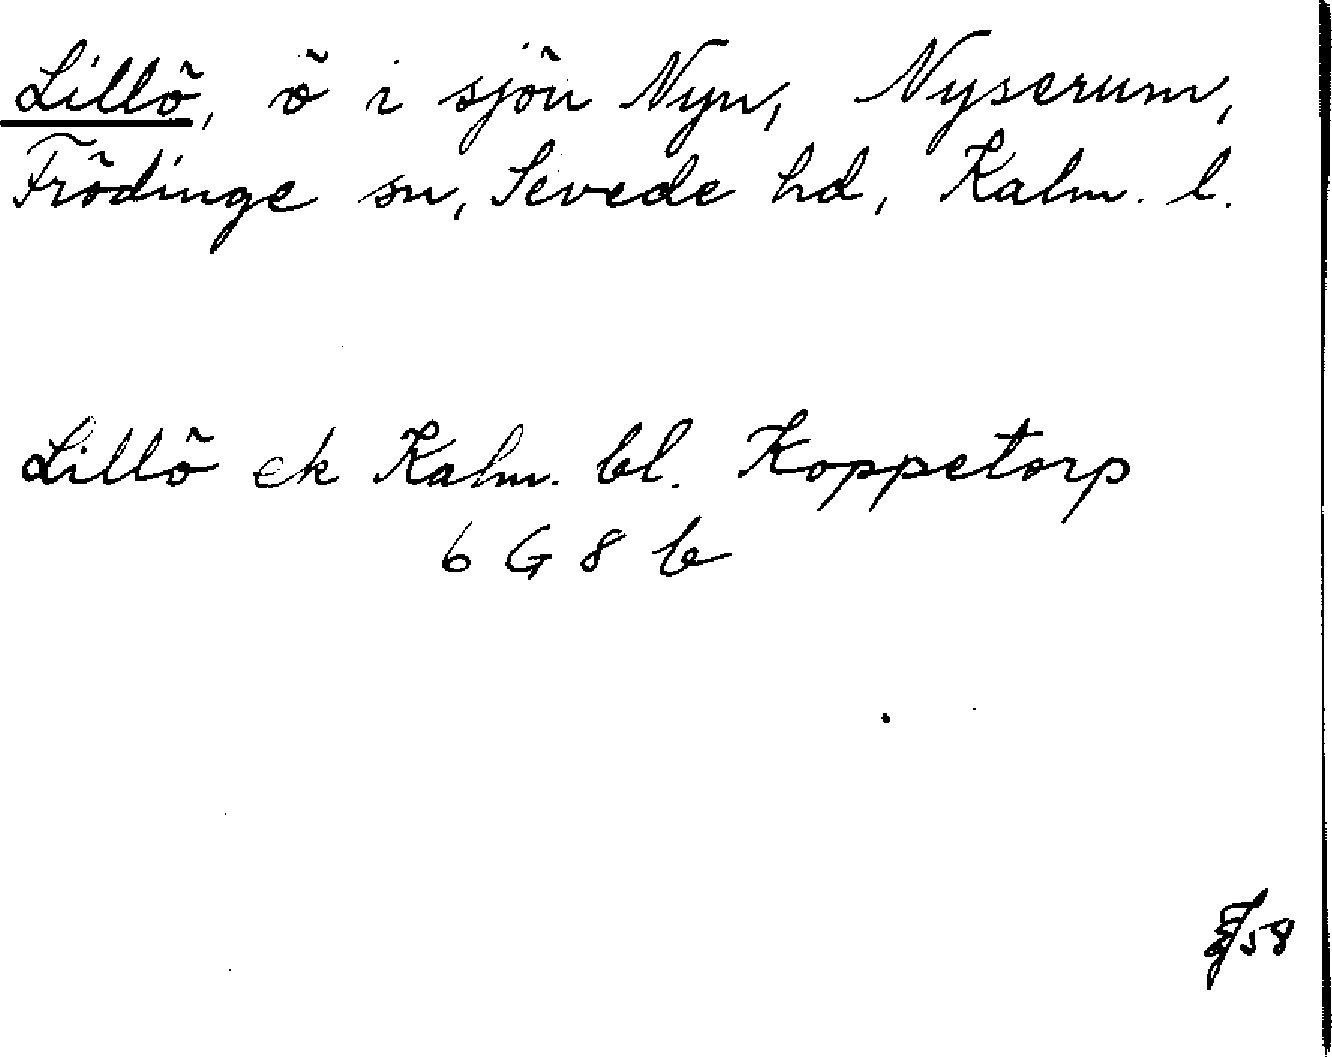 Lillö, ö i sjön Nyn, Nyserum,
Frödinge sn, Sevede hd, Kalm. l.
Lillö ek Kalm. bl. Koppetorp
6 G 8 b
58